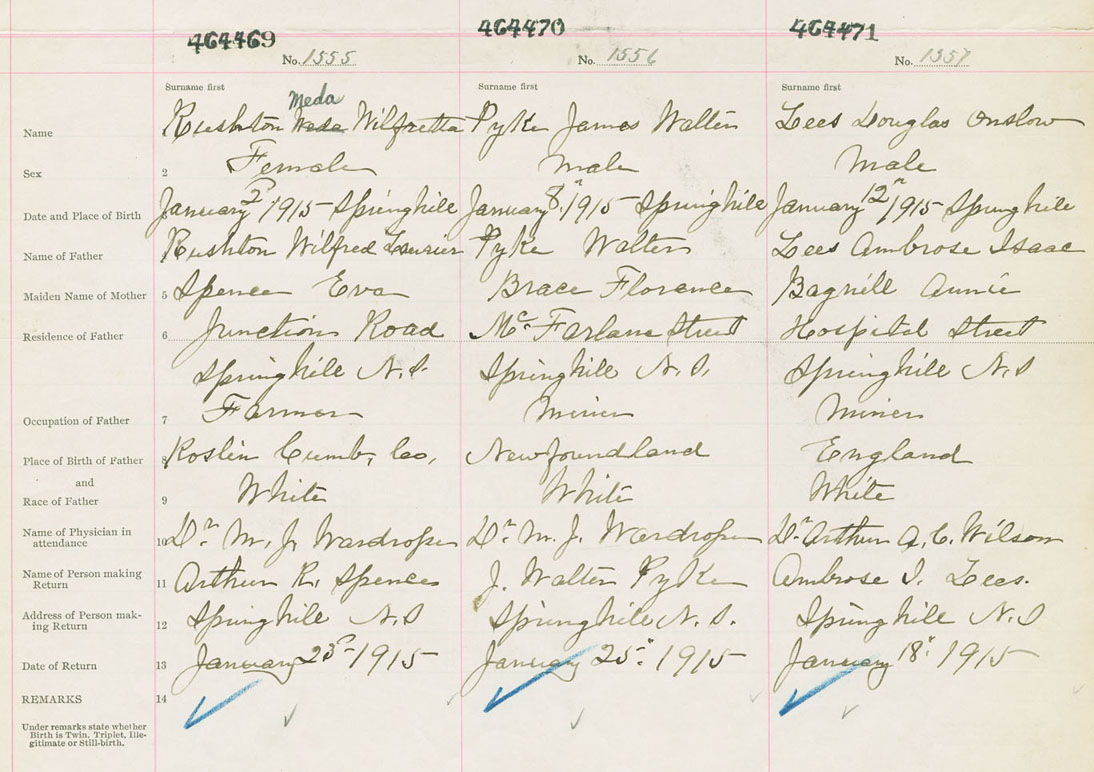 464469 464470 464471
No. 1555 No. 1556 No. 1557
Surname first Surname first Surname first
Meda
Name Rushton Weda Wilfretta Pyke James Walter Lees Douglas Onslow
Sex 2 Female Male Male
Date and Place of Birth January 2d 1915 Springhill January 8th 1915 Springhill January 12th 1915 Springhill
Name of Father Rushton Wilfred Laurier Pyke Walter Lees Ambrose Isaac
Maiden Name of Mother 5 Spence Eva Brace Florence Bagnill Annie
Residence of Father 6 Junction Road Mc.Farlane Street Hospital Street
Springhill N.S. Springhill N.S. Springhill N.S
Occupation of Father 7 Farmer Miner Miner
Place of Birth of Father 8 Roslin Cumb, Co, Newfoundland England
and
Race of Father 9 White White White
Name of Physician in
attendance 10 Dr. M. J. Wardrope Dr. M. J. Wardrope Dr Arthur A. C. Wilson
Name of Person making
Return 11 Arthur R. Spence J. Walter Pyke Ambrose I. Lees.
Address of Person mak-
ing Return 12 Springhill N.S Springhill N.S. Springhill N.S
Date of Return 13 January 23d 1915 January 25th 1915 January 18th 1915
REMARKS 14
Under remarks state whether
Birth is Twin, Triplet, Ille-
gitimate or Still-birth.